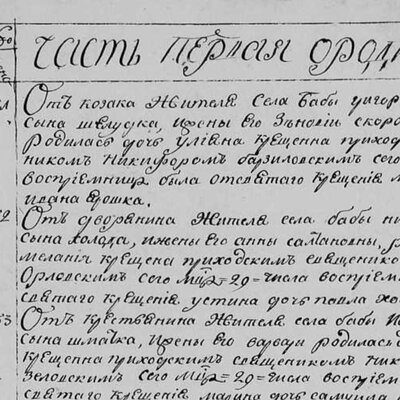 ЧАСТЬ ПЕРВАЯ О РОДИ
Отъ козака Жителя Села Бабы Григор
сына шевчука, ижены его Зѣновіи скоро
Родилась дочь Уліяна Крещенна приход
никомъ Никифоромъ базиловскимъ сего
воспріемница была отсвятаго крещенія
ивана ярошка.
Отъ дворянина Жителя села бабы ни
сына холода, ижены его анны самановны, р
мелания крещена приходскимъ священико
Орловскимъ Сего Мцѣ=29=числа воспріем
святаго крещенія устина дочь павла хо
Отъ Крестянина Жителя села бабы и
сына шмаіка, ижены его варвари родилась
крещенна приходскимъ священикомъ ник
зеловскимъ сего мцѣ=29=числа воспріем
святаго крещенія марина дочь самуила